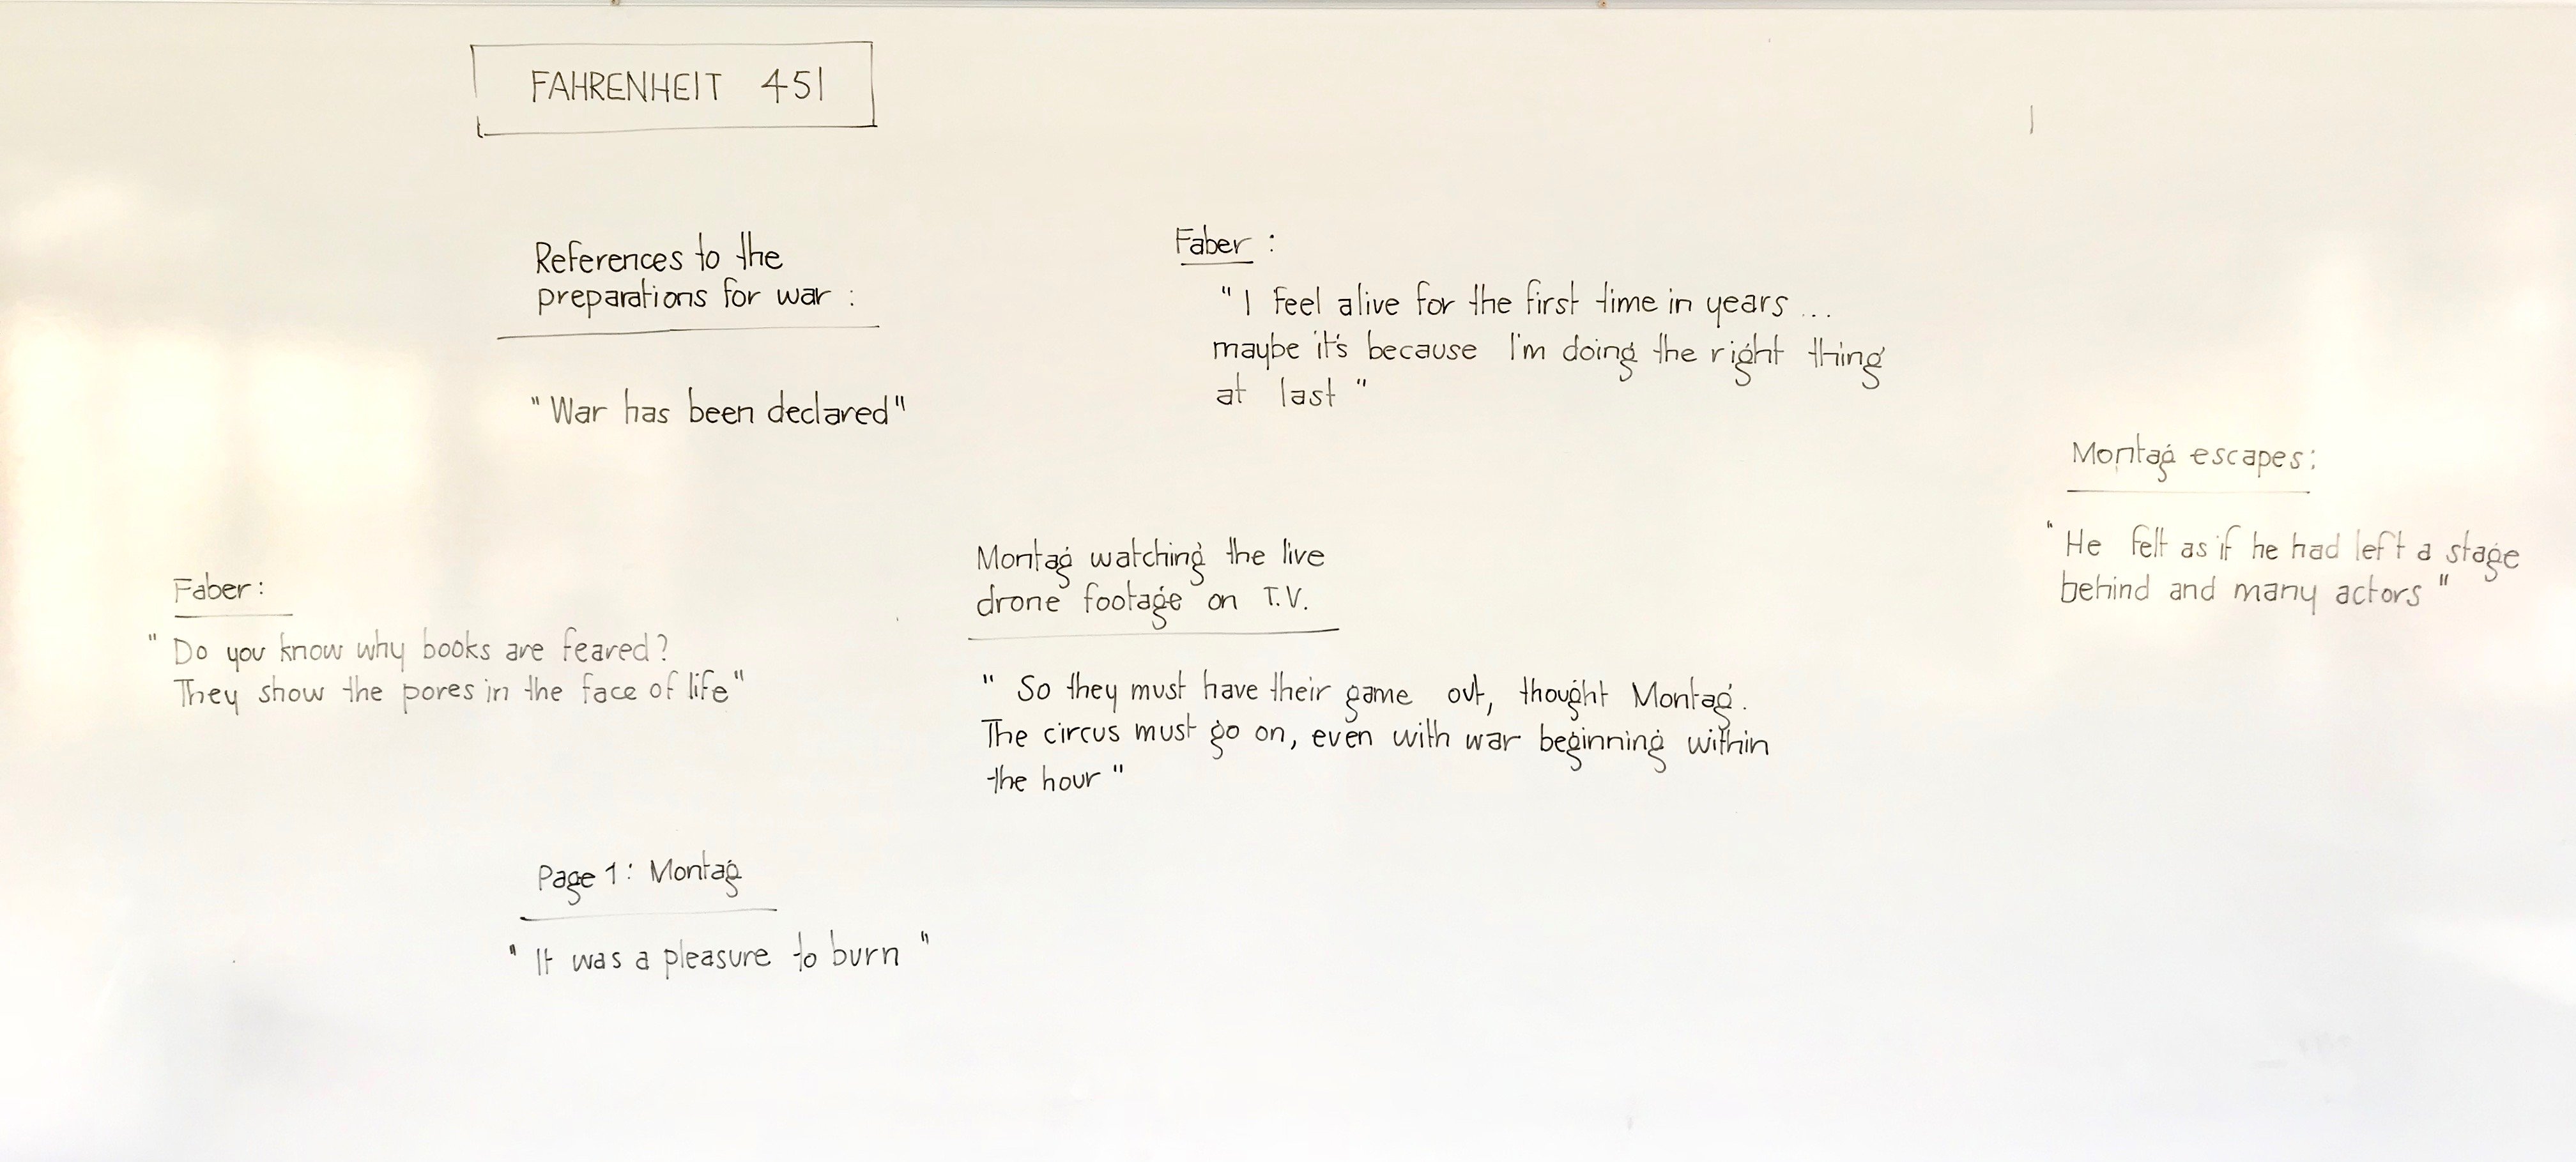 FAHRENHEIT 451
References to the
preparations for war :
"War has been declared"
Faber :
"I feel alive for the first time in years ...
maybe it's because I'm doing the right thing
at last"
Montag escapes:
"He felt as if he had left a stage
behind and many actors"
Faber:
"Do you know why books are feared?
They show the pores in the face of life"
Montag watching the live
drone footage on T.V.
"So they must have their game out, thought Montag.
The circus must go on, even with war beginning within
the hour"
Page 1: Montag
"It was a pleasure to burn"